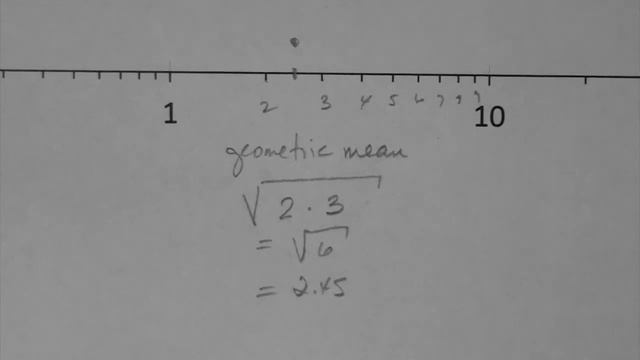 2 3 4 5 6 7 8 9
1 10
geometric mean
√2 · 3
= √6
= 2.45